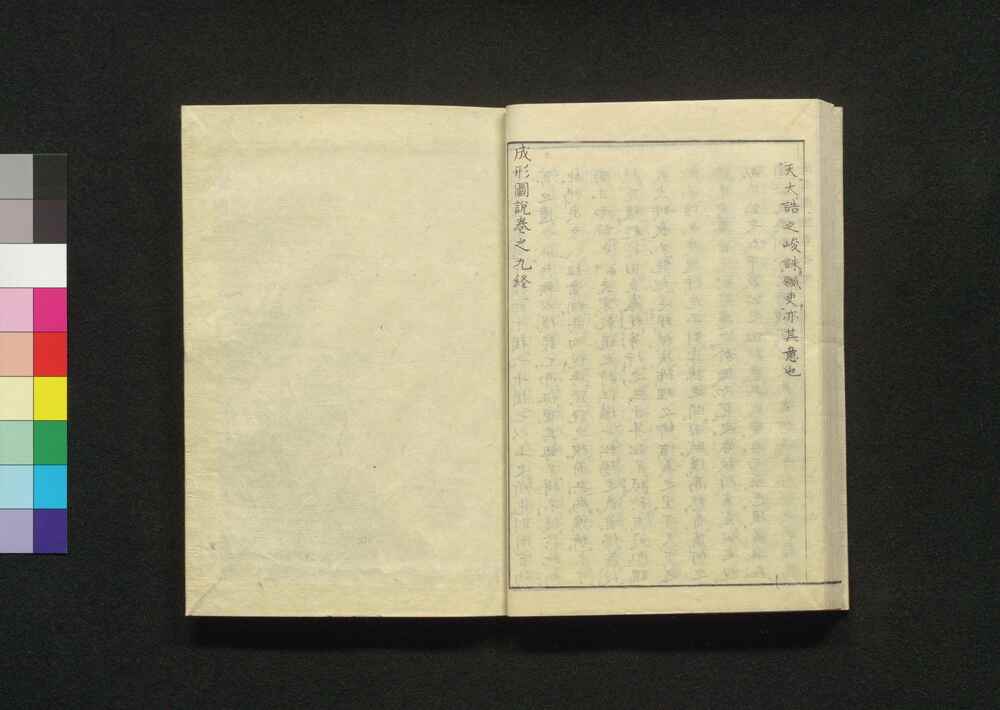 天大誥之峻誅贓吏亦其意也
成形圖說卷之九終